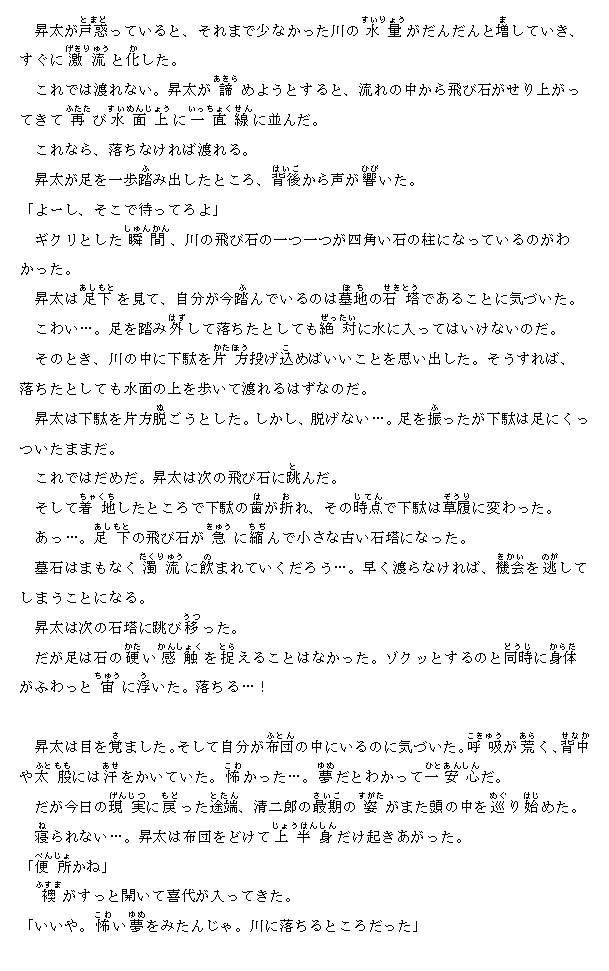 昇太が戸惑っていると、それまで少なかった川の水量がだんだんと増していき、
すぐに激流と化した。
これでは渡れない。昇太が諦めようとすると、流れの中から飛び石がせり上がっ
てきて再び水面上に一直線に並んだ。
これなら、落ちなければ渡れる。
昇太が足を一歩踏み出したところ、背後から声が響いた。
「よーし、そこで待ってろよ」
ギクリとした瞬間、川の飛び石の一つ一つが四角い石の柱になっているのがわ
かった。
昇太は足下を見て、自分が今踏んでいるのは墓地の石塔であることに気づいた。
こわい…。足を踏み外して落ちたとしても絶対に水に入ってはいけないのだ。
そのとき、川の中に下駄を片方投げ込めばいいことを思い出した。そうすれば、
落ちたとしても水面の上を歩いて渡れるはずなのだ。
昇太は下駄を片方脱ごうとした。しかし、脱げない…。足を振ったが下駄は足にくっ
ついたままだ。
これではだめだ。昇太は次の飛び石に跳んだ。
そして着地したところで下駄の歯が折れ、その時点で下駄は草履に変わった。
あっ…。足下の飛び石が急に縮んで小さな古い石塔になった。
墓石はまもなく濁流に飲まれていくだろう…。早く渡らなければ、機会を逃して
しまうことになる。
昇太は次の石塔に跳び移った。
だが足は石の硬い感触を捉えることはなかった。ゾクッとするのと同時に身体
がふわっと宙に浮いた。落ちる…！
昇太は目を覚ました。そして自分が布団の中にいるのに気づいた。呼吸が荒く、背中
や太股には汗をかいていた。怖かった…。夢だとわかって一安心だ。
だが今日の現実に戻った途端、清二郎の最期の姿がまた頭の中を巡り始めた。
寝られない…。昇太は布団をどけて上半身だけ起きあがった。
「便所かね」
襖がすっと開いて喜代が入ってきた。
「いいや。怖い夢をみたんじゃ。川に落ちるところだった」